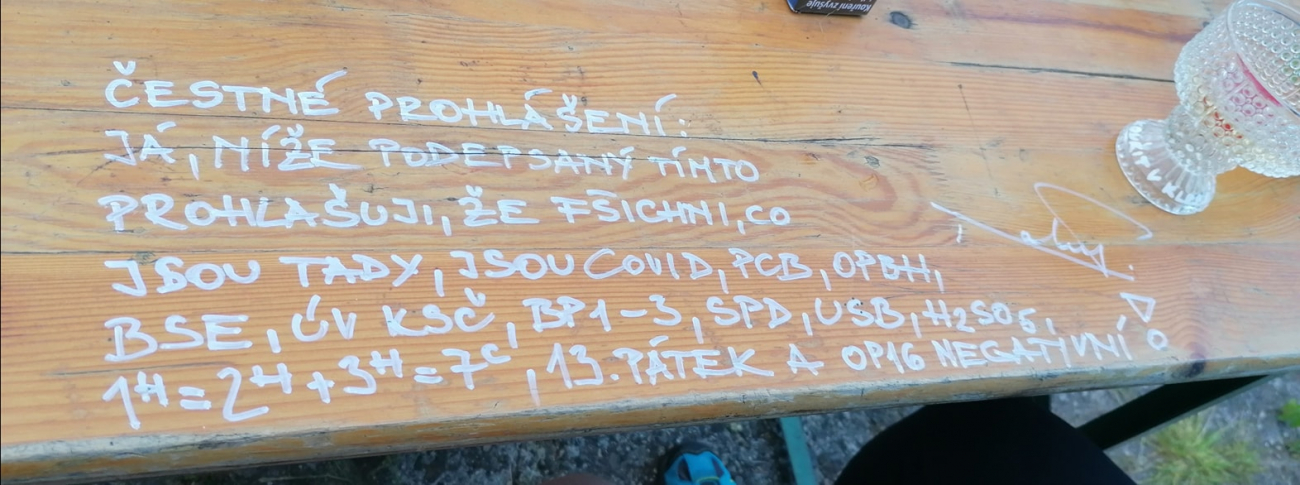 Kouření zvyšuje
ČESTNÉ PROHLÁŠENÍ:
JÁ, NÍŽE PODEPSANÝ TÍMTO
PROHLAŠUJI, ŽE FŠICHNI, CO
JSOU TADY, JSOU COVID, PCB, OPBH,
BSE, ÚV KSČ, BP1-3, SPD, USB, H2SO5,
1H=2H+3H=7C, 13. PÁTEK A OP16 NEGATIVNÍ